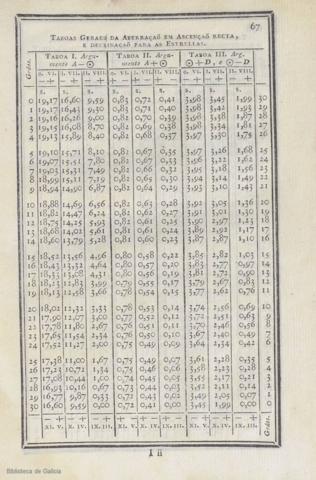 67
TABOAS GERAES DA ABERRAÇAÕ EM ASCENÇAÕ RECTA,
E DECLINAÇAÕ PARA AS ESTRELLAS.
TABOA I. Argumento A—☉ TABOA II. Argumento A+☉ TABOA III. Arg. ☉+D, e ☉—D
Gráos.
0 19,17 16,60 9,59 0,83 0,72 0,41 3,98 3,45 1,99 30
1 19,17 16,43 9,30 0,83 0,71 0,40 3,98 3,42 1,93 29
2 19,16 16,26 9,00 0,82 0,70 0,39 3,98 3,38 1,87 28
3 19,15 16,08 8,70 0,82 0,69 0,38 3,98 3,34 1,81 27
4 19,13 15,89 8,40 0,82 0,68 0,37 3,97 3,30 1,75 26
5 19,10 15,71 8,10 0,82 0,67 0,35 3,97 3,26 1,68 25
6 19,07 15,51 7,80 0,82 0,67 0,33 3,96 3,22 1,62 24
7 19,03 15,31 7,49 0,82 0,66 0,32 3,95 3,18 1,56 23
8 18,99 15,11 7,19 0,82 0,65 0,30 3,94 3,14 1,49 22
9 18,94 14,90 6,87 0,82 0,64 0,29 3,93 3,10 1,43 21
10 18,88 14,69 6,56 0,82 0,63 0,28 3,92 3,05 1,36 20
11 18,82 14,47 6,24 0,82 0,62 0,27 3,91 3,01 1,30 19
12 18,75 14,25 5,93 0,81 0,61 0,25 3,90 2,97 1,23 18
13 18,68 14,02 5,61 0,81 0,61 0,24 3,89 2,92 1,17 17
14 18,60 13,79 5,28 0,81 0,60 0,23 3,87 2,87 1,10 16
15 18,52 13,56 4,96 0,80 0,58 0,22 3,85 2,82 1,03 15
16 18,43 13,32 4,64 0,80 0,57 0,20 3,83 2,77 0,97 14
17 18,33 13,08 4,31 0,80 0,56 0,19 3,81 2,72 0,90 13
18 18,23 12,83 3,99 0,79 0,55 0,17 3,79 2,67 0,83 12
19 18,13 12,58 3,66 0,78 0,54 0,15 3,77 2,62 0,76 11
20 18,02 12,32 3,33 0,78 0,53 0,14 3,74 2,56 0,69 10
21 17,90 12,07 3,00 0,77 0,52 0,12 3,72 2,51 0,63 9
22 17,78 11,80 2,67 0,76 0,51 0,11 3,70 2,46 0,56 8
23 17,65 11,54 2,34 0,76 0,50 0,10 3,67 2,40 0,49 7
24 17,52 11,27 2,00 0,75 0,49 0,09 3,64 2,34 0,42 6
25 17,38 11,00 1,67 0,75 0,49 0,07 3,61 2,28 0,35 5
26 17,23 10,72 1,34 0,75 0,46 0,06 3,58 2,23 0,28 4
27 17,08 10,44 1,00 0,74 0,45 0,05 3,55 2,17 0,21 3
28 16,93 10,16 0,67 0,73 0,44 0,03 3,52 2,11 0,14 2
29 16,77 9,87 0,33 0,72 0,43 0,02 3,49 2,05 0,07 1
30 16,60 9,59 0,00 0,72 0,41 0,00 3,45 1,99 0,00 0
XI. V. X. IV. IX. III. XI. V. X. IV. IX. III. XI. V. X. IV. IX. III.
Gráos.
I ii
Biblioteca de Galicia